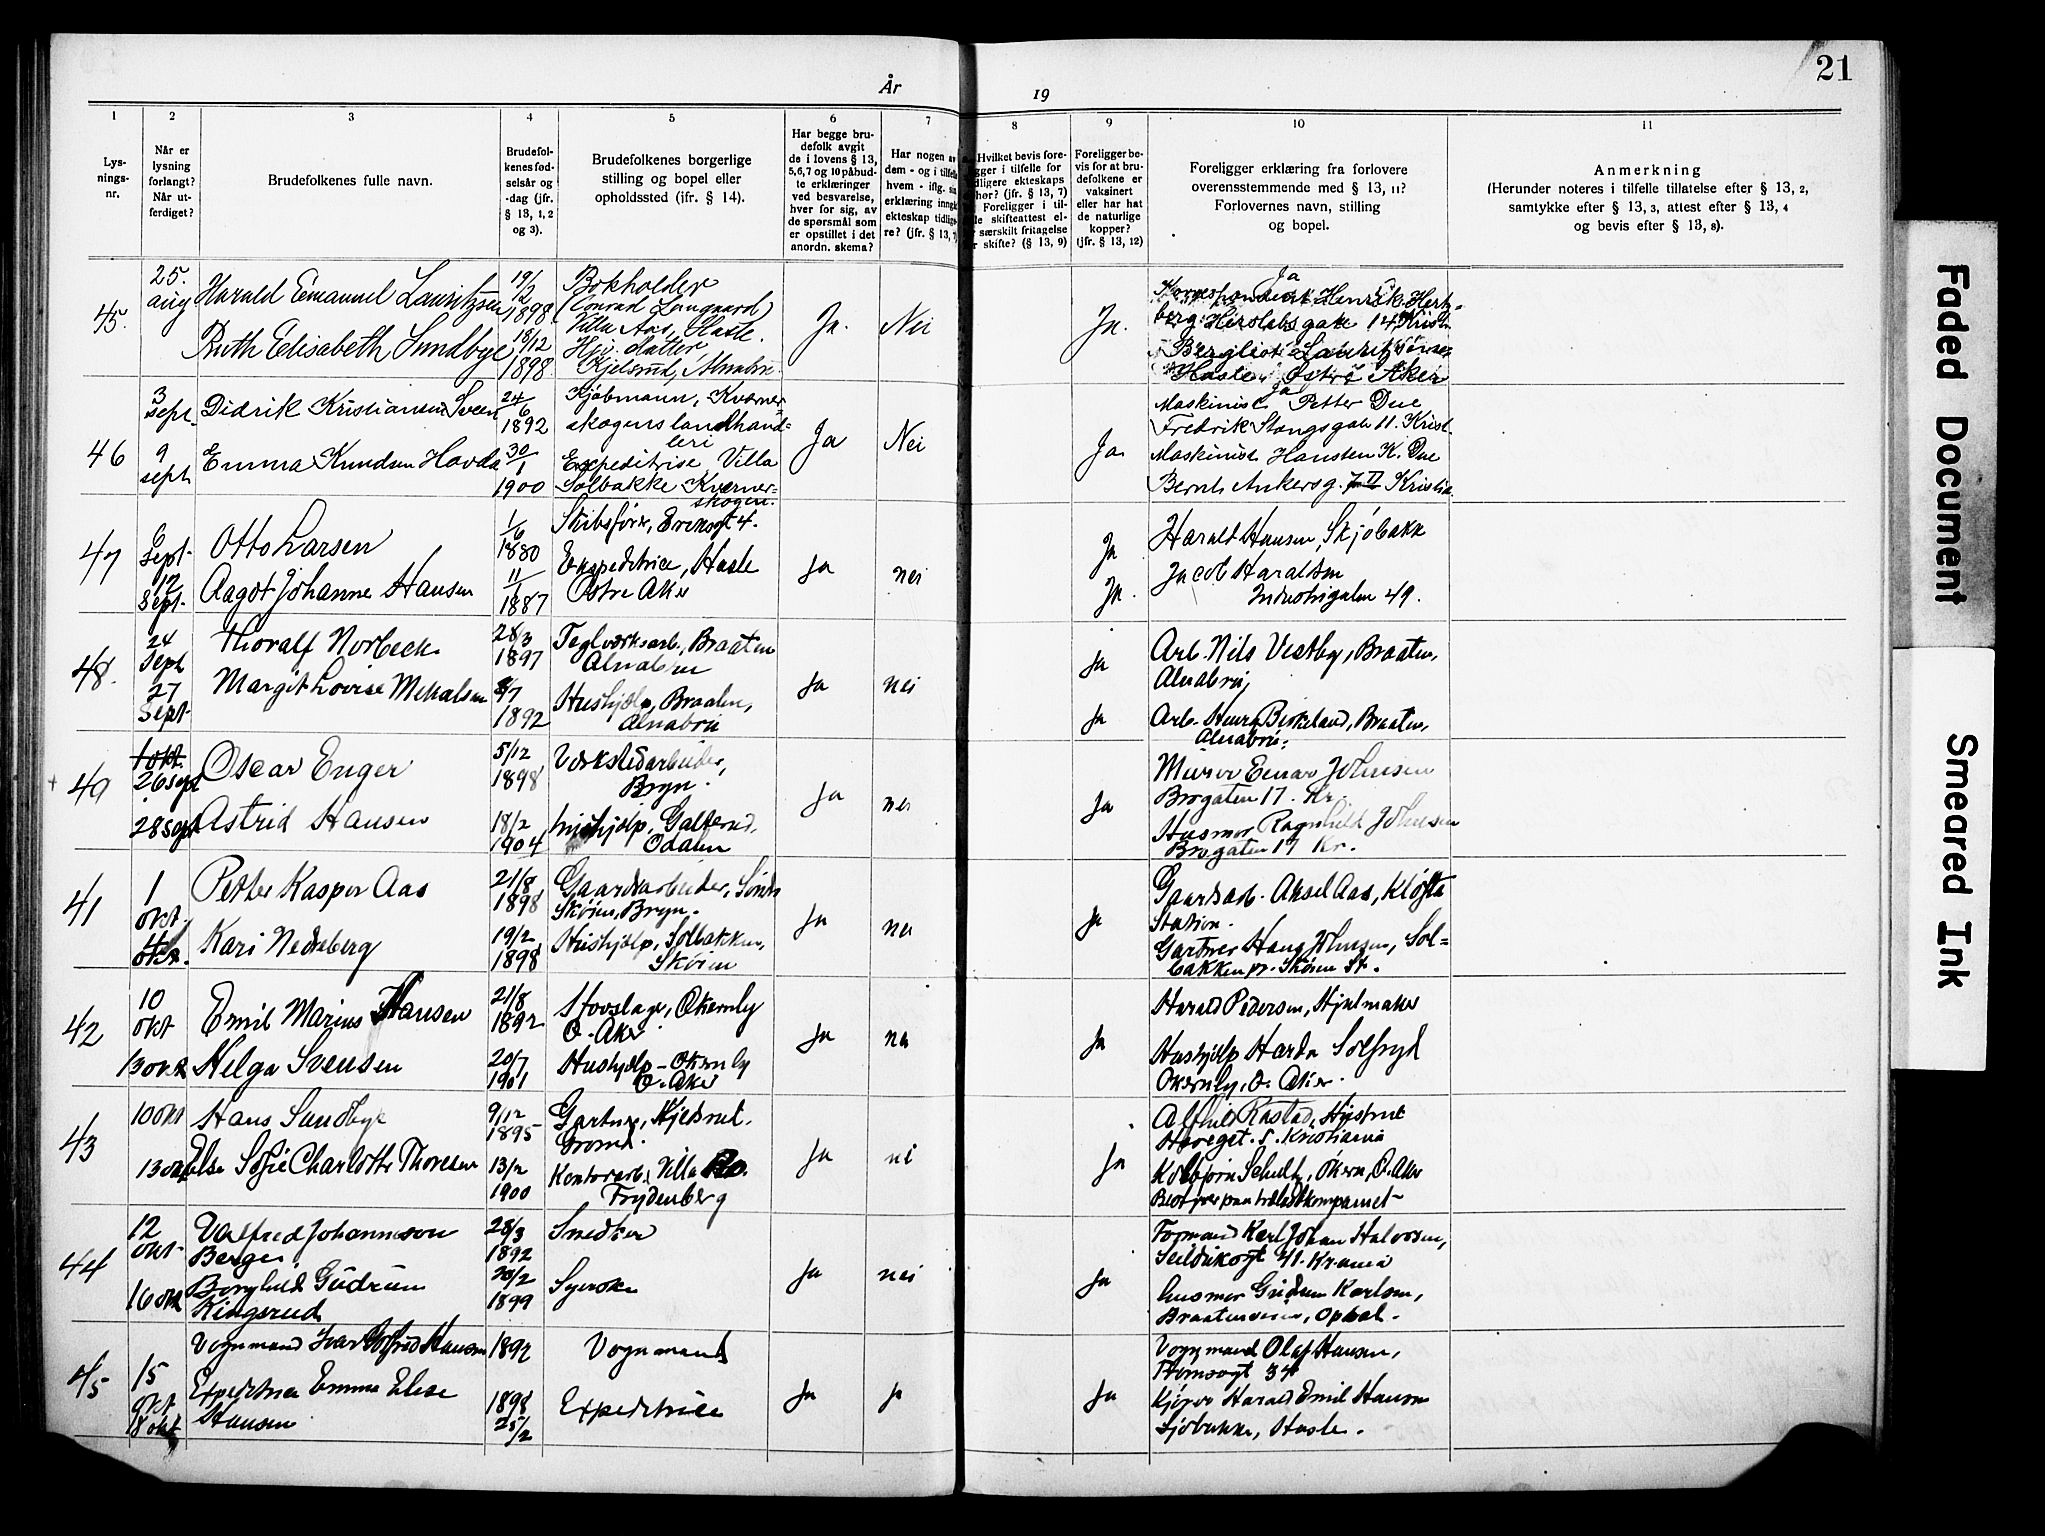 21
År
19
1
2
3
4
5
6
7
8
9
10
11
Lys-
nings-
nr.
Når er
lysning
forlangt?
Når ut-
ferdiget?
Brudefolkenes fulle navn.
Brudefol-
kenes fød-
selsår og
-dag (jfr.
§ 13, 1, 2
og 3).
Brudefolkenes borgerlige
stilling og bopel eller
opholdssted (jfr. § 14).
Har begge bru-
defolk avgit
de i lovens § 13,
5,6,7 og 10 påbud-
te erklæringer
ved besvarelse,
hver for sig, av
de spørsmål som
er opstillet i det
anordn. skema?
Har nogen av
dem - og i tilfelle
hvem - iflg. sin
erklæring inngå
ekteskap tidlig-
re? (jfr. § 13, 7
Hvilket bevis fore-
gger i tilfelle for
dligere ekteskaps
hør? (jfr. § 13, 7)
Foreligger i til-
le skifteattest el-
særskilt fritagelse
skifte? (§ 13, 9)
Foreligger be-
vis for at bru-
defolkene er
vaksinert
eller har hat
de naturlige
kopper?
(jfr. § 13, 12)
Foreligger erklæring fra forlovere
overensstemmende med § 13, 11?
Forlovernes navn, stilling
og bopel.
Anmerkning
(Herunder noteres i tilfelle tillatelse efter § 13, 2,
samtykke efter § 13, 3, attest efter § 13, 4
og bevis efter § 13, 8).
45.
25.
aug
Harald Emanuel Lauritzsen
Ruth Elisabeth Sundbye
19/2
1898
18/12
1898
Bokholder
(Conrad Langaard)
Villa Aas, Hasle.
Hj. datter,
Kjelsrud, Alnabru
Ja.
Nei
Ja.
Ja
Korrespondent Henrik Hertz-
berg, Herslebs gate 14 Krist.
Bergliot Lauritzsen
Hasle, Østre Aker
46
3
sept.
9
sept
Didrik Kristiansen Sveen
Emma Knudsen Hovda
24/6
1892
30/1
1900
Kjøbmann, Kværner-
skogens landhand-
leri
Expeditrise, Villa
Solbakke Kværner-
skogen.
Ja
Nei
Ja
Ja
Maskinist Petter Due
Fredrik Stangsgate 11. Krist.
Maskinist Hansten K. Due
Bernt Ankersg. 7 II Kristia
47
6
Sept.
12
Sept.
Otto Larsen
Aagot Johanne Hansen
1/6
1880
11/6
1887
Skibsfører, Eriksgt 4.
Expeditrice, Hasle
Østre Aker
Ja
nei
Ja
Ja.
Harald Hansen, Skjøbakk
Jacob Haraldsen
Industrigaten 49.
48.
24
Sept
27
Sept.
Thoralf Norbeck
Margit Lovise Mikalsen
28/3
1897
8/7
1892
Teglverksarb., Braaten
Alnabru
Hushjælp, Braaten,
Alnabru
Ja
nei
Ja
Ja
Arb. Nils Vestby, Braaten,
Alnabru,
Arb. Henry Birkeland, Braaten,
Alnabru.
49
1 okt.
26 sept
28 sept
Oscar Enger
Astrid Hansen
5/12
1898
18/2
1904
Verkstedarbeider,
Bryn.
hushjælp, Galterud,
Odalen
Ja
nei
Ja
Murer Einar Johnsen
Brogaten 17. Kr.
Husmor Ragnhild Johnsen
Brogaten 17 Kr.
41
1
okt.
okt.
Petter Kasper Aas
Kari Nedreberg
21/8
1898
19/2
1898
Gaardsarbeider, Søndre
Skøien, Bryn.
Hushjælp, Solbakken,
Skøien
Ja
nei
Ja
Gaardsarb. Aksel Aas, Kløfta
Station.
Gartner Haug Johnsen, Sol-
bakken pr. Skøien St.
42
10
okt
13 okt
Emil Marius Hansen
Helga Svensen
21/8
1892
20/7
1901
Hovslager, Økernby
Ø. Aker
Hushjelp - Økernby
Ø. Aker
Ja
nei
Ja
Harald Pedersen, Hjulmaker
Hushjælp Harda Solfryd
Økernby, Ø. Aker.
43
10 okt
13 okt
Hans Sundbye
Else Sofie Charlotte Thoresen
9/12
1895
13/2
1900
Gartner, Kjelsrut.
Grorud.
Kontorarb. Villa Ro.
Frydenberg
Ja
nei
Ja
Alfhild Rastad, Hustrut
Havegt. 5. Kristiania
Kolbjørn Schultz, Økern, Ø. Aker
44
12
okt.
16 okt
Valfred Johanneson
Berger
Borghild Gudrun
Ringerud
28/3
1892
20/2
1899
Snedker
Syerske
Ja
nei
Ja
Formand Karl Johan Halvorsen,
Seilduksgt 41. Krania
husmor Gudrun Karlsen,
Braatenveien, Opsal.
45
15
okt
18 okt
Vognmand Ivar Gotfred Hansen
Expeditrice Emma Elise
Hansen
1892
1898
25/2
Vognmand
Expeditrice
Ja
ja
Ja
Vognmand Olaf Hansen,
Tromsøgt 34
Kjører Harald Emil Hansen
Sjøbakke, Hasle.
Faded Document
Smeared Ink